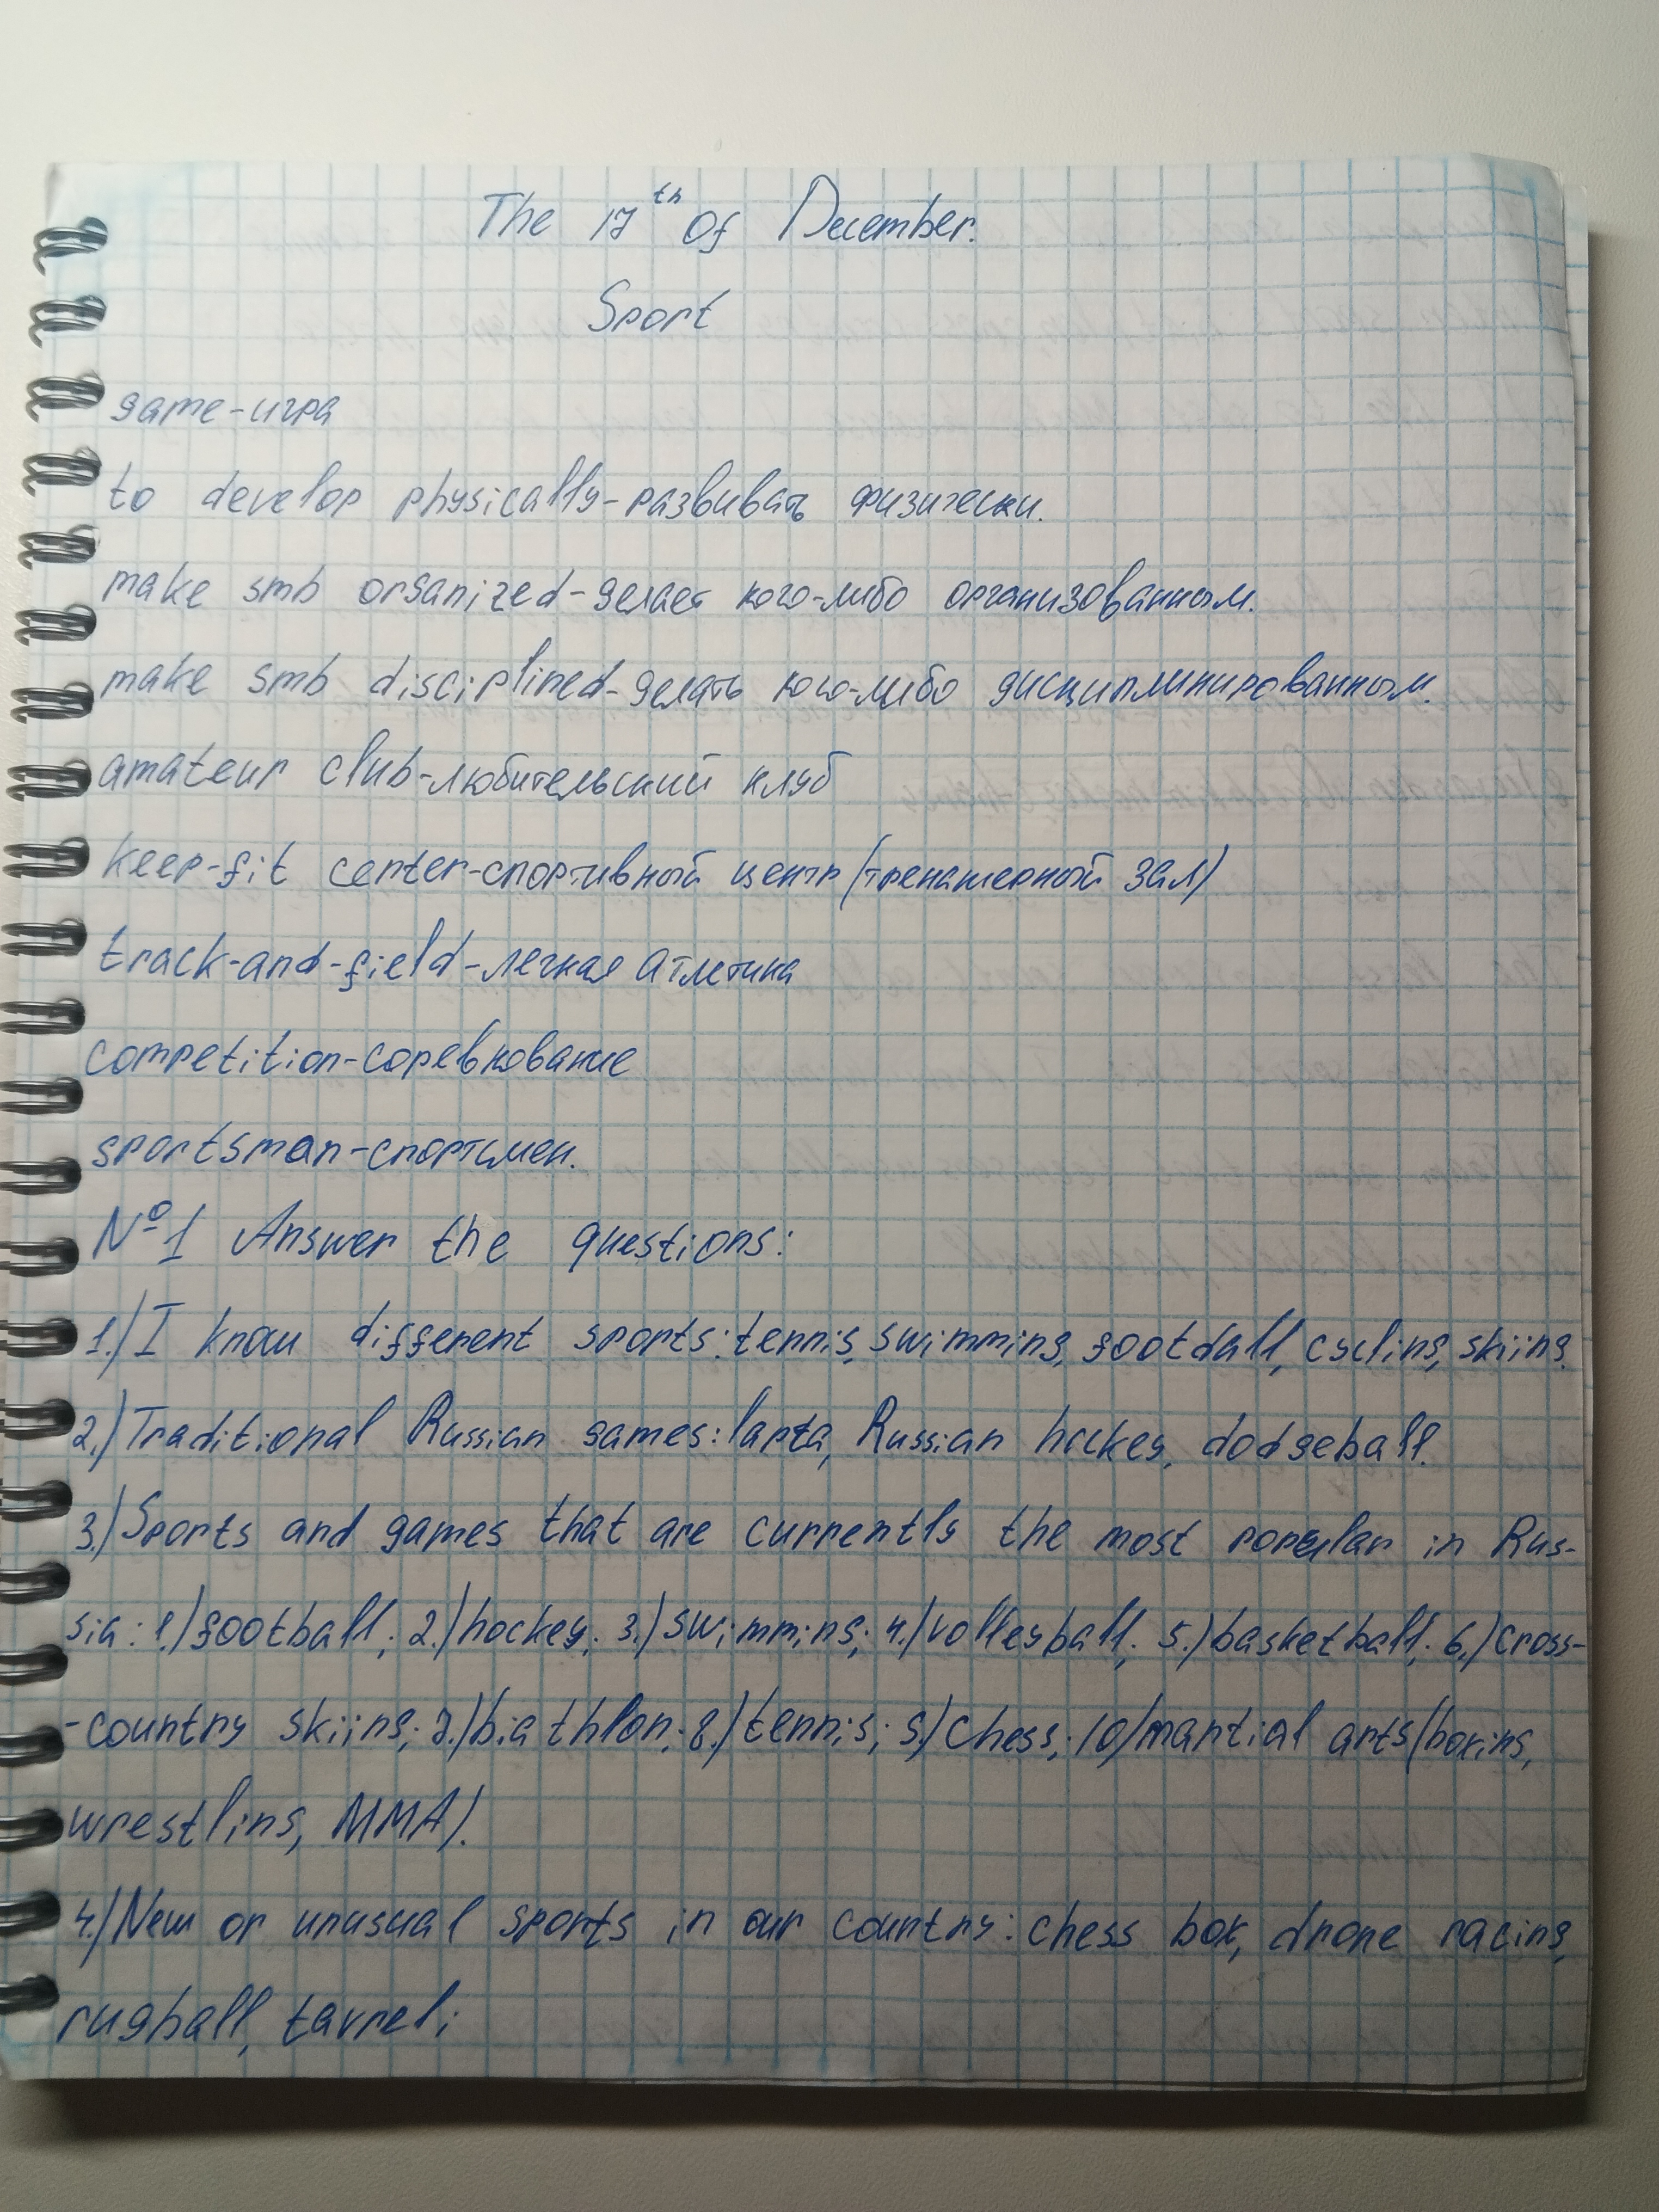 The 17th Of December.
Sport
game-игра
to develop physically-развивать физически.
make smb organized-делает кого-либо организованным.
make smb disciplined-делать кого-либо дисциплинированным.
amateur club-любительский клуб
keep-fit center-спортивный центр (тренажерный зал)
track-and-field-легкая атлетика
competition-соревнование
sportsman-спортсмен.
№1 Answer the questions:
1.) I know different sports: tennis, swimming, football, cycling, skiing.
2.) Traditional Russian games: lapta, Russian hockey, dodgeball.
3.) Sports and games that are currently the most popular in Rus-
sia: 1.) football; 2.) hockey; 3.) swimming; 4.) volleyball; 5.) basketball; 6.) cross-
-country skiing; 7.) biathlon; 8.) tennis; 9.) chess; 10) martial arts (boxing,
wrestling, MMA).
4.) New or unusual sports in our country: chess box, drone racing,
rugball, tavreli